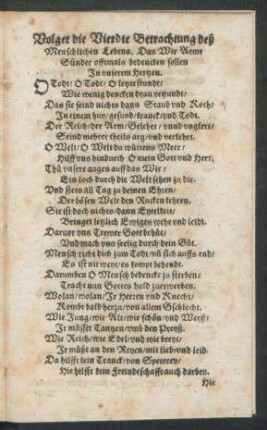 Volget die Vierdte Betrachtung deß
Menschlichen Lebens. Das Wir Arme
Sünder offtmals bedencken sollen
In vnserem Hertzen.
O Todt / O Todt / O letze stunde /
Wie wenig dencken dran yetzunde /
Das sie seind nichts dann Staub vnd Koth /
In einem huy / gesund / kranck / vnd Todt.
Der Reich / der Arm / Gelehrt / vnnd vnglert /
Seind mehrer theils arg / vnd verkehrt.
O Welt / O Welt du wüttens Meer /
Hilff vns hindurch O mein Gott vnd Herr.
Thů vnsere augen auff das Wir /
Ein loch durch die Welt sehen zu dir.
Vnd stets all Tag zu deinen Ehren /
Der bösen Welt den Rucken kehren.
Sie ist doch nichts / dann Eytelkeit /
Bringet letzlich Ewigen wehe vnd leidt.
Daruor vns Trewer Gott behüt /
Vnd mach vns seelig durch dein Güt.
Mensch richt dich zum Todt / vñ sich auffs end /
Es ist nit weyt / es kompt behend.
Darumben O Mensch bedencke zu sterben /
Tracht nur Gottes huld zuerwerben.
Wolan / wolan / Jr Herren vnd Knecht /
Kombt bald herzu / von allem Gschlecht.
Wie Jung / wie Alt / wie schön / vnd Weyß /
Jr müsset Tantzen / vmb den Preyß.
Wie Reich / wie Edel / vnd wie breyt /
Jr müßt an den Reyen / mit lieb vnd leid.
Da hilfft kein Tranck / von Specerey /
Hie hilfft kein Freindschafft auch darbey.
Hie